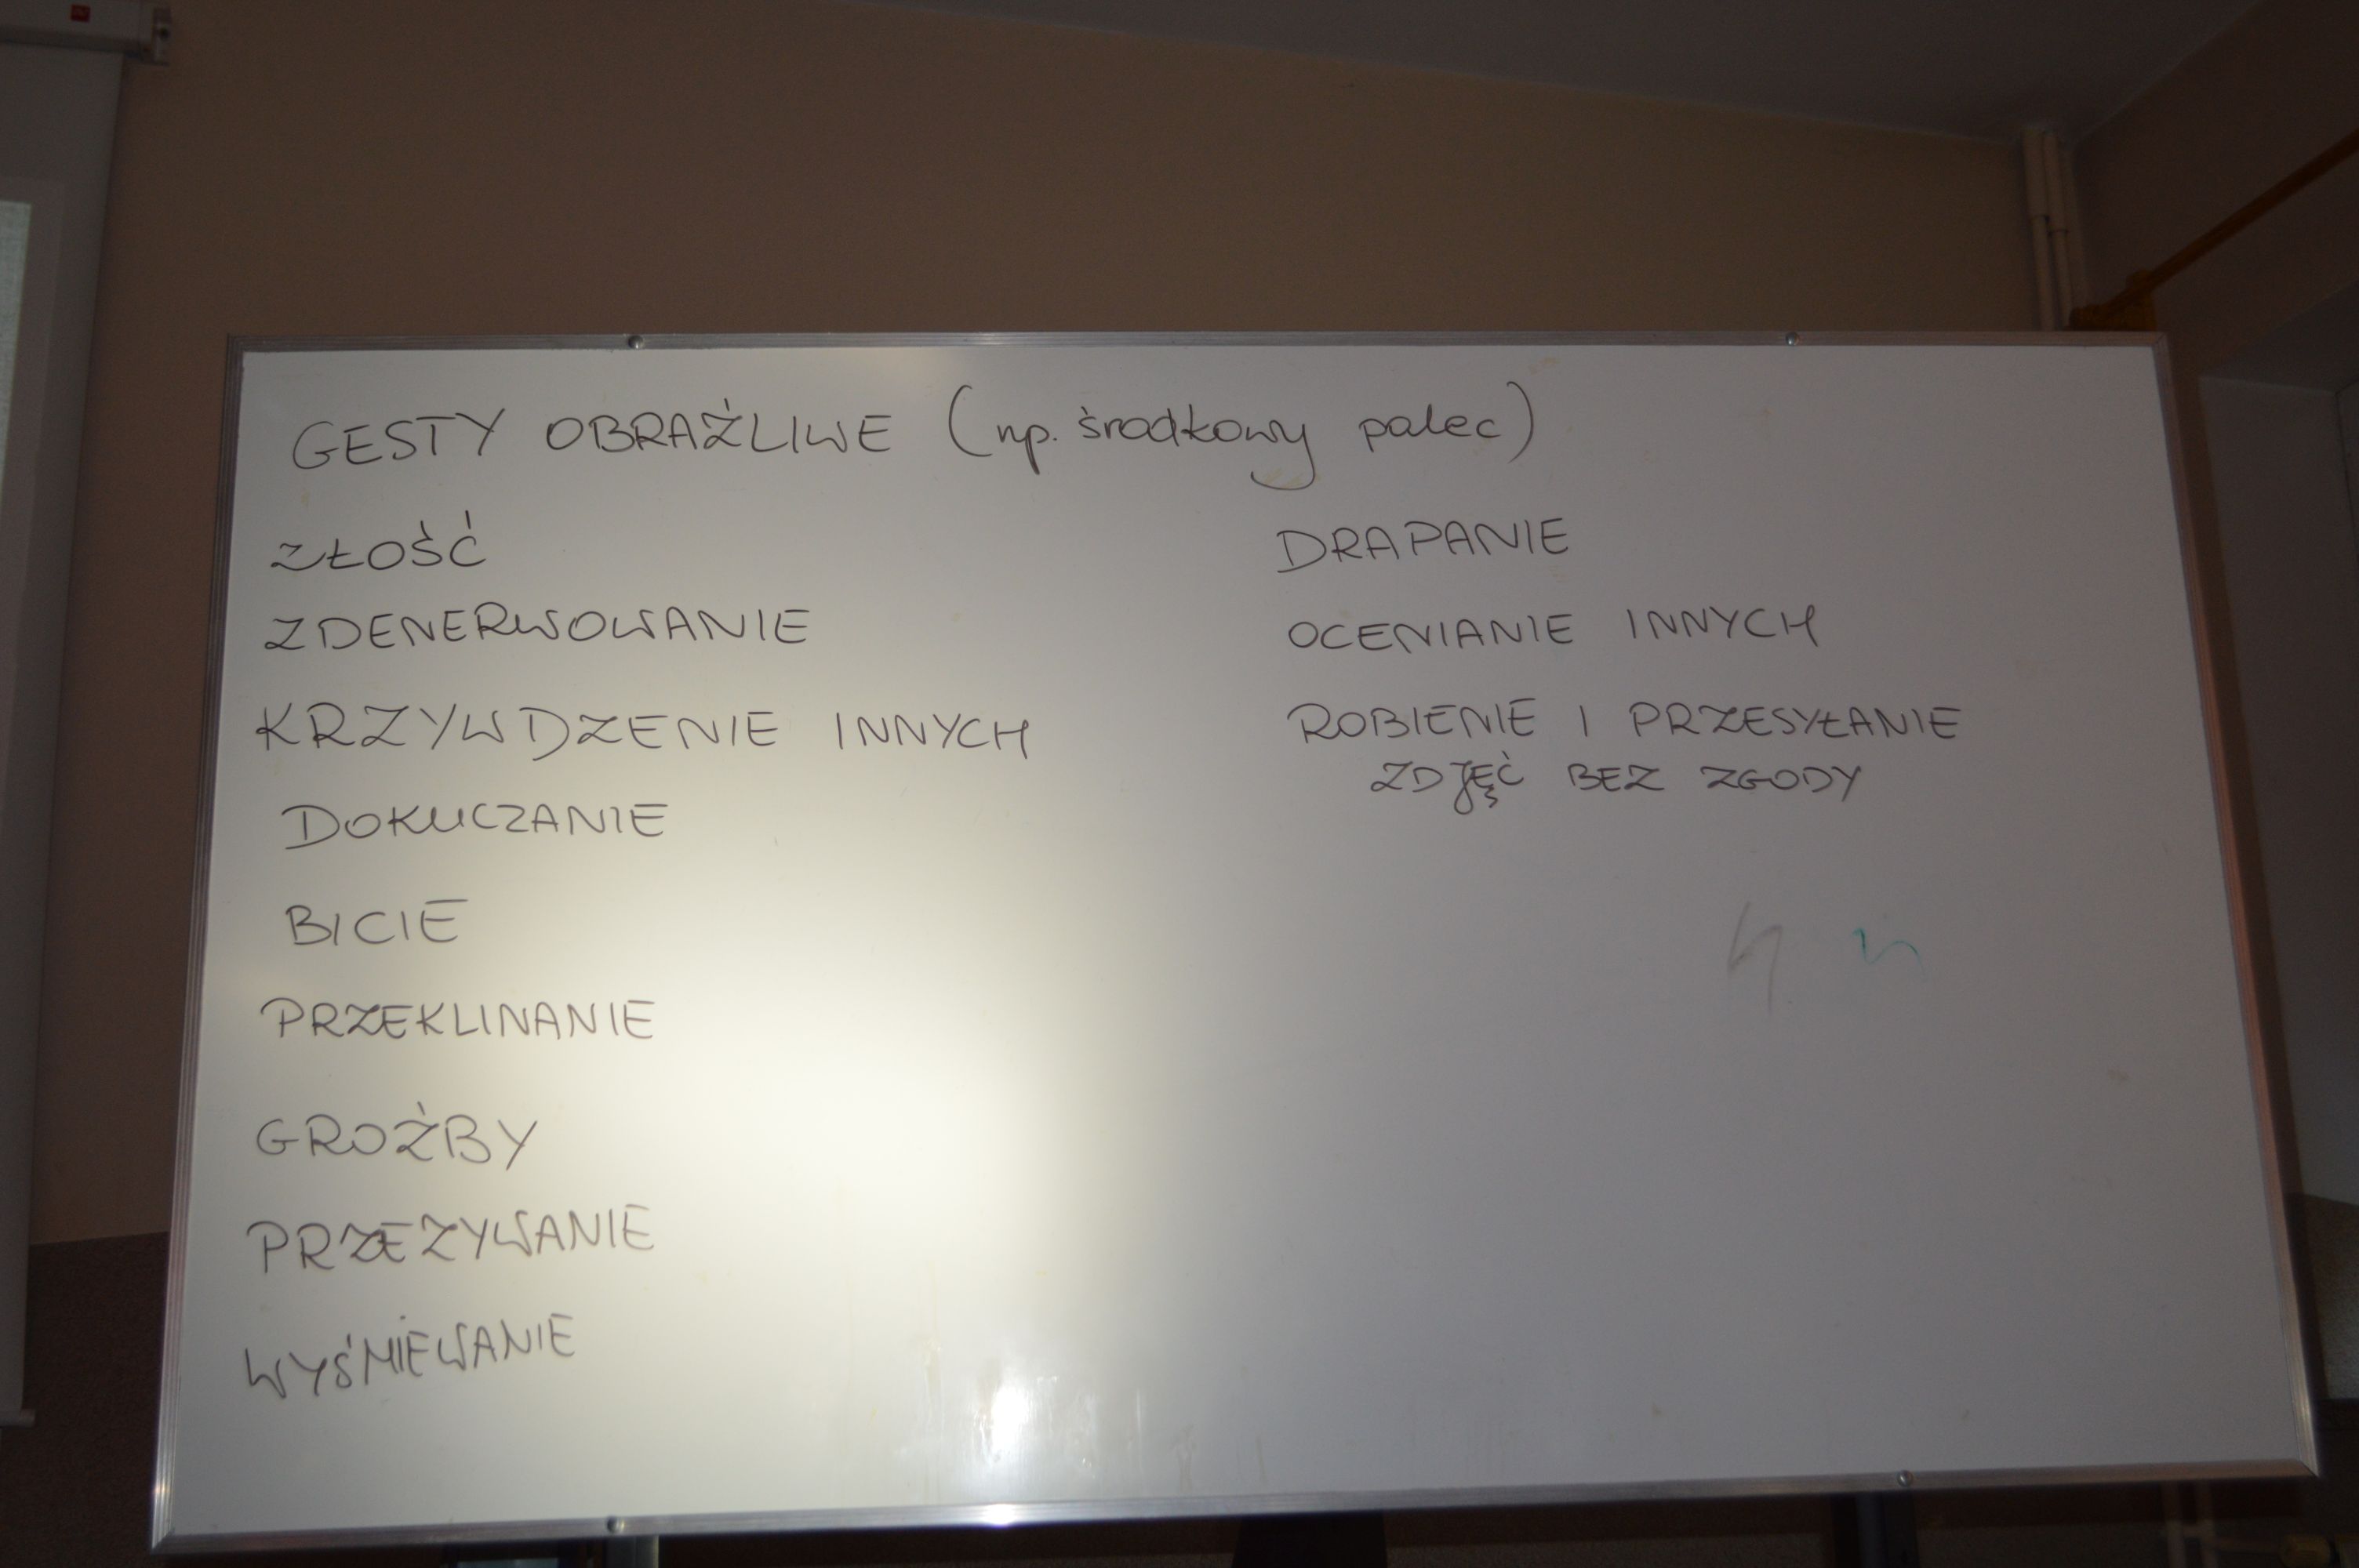 GESTY OBRAŹLIWE (np. środkowy palec)
ZŁOŚĆ
ZDENERWOWANIE
KRZYWDZENIE INNYCH
DOKUCZANIE
BICIE
PRZEKLINANIE
GROŹBY
PRZEZYWANIE
WYŚMIEWANIE
DRAPANIE
OCENIANIE INNYCH
ROBIENIE I PRZESYŁANIE
ZDJĘĆ BEZ ZGODY